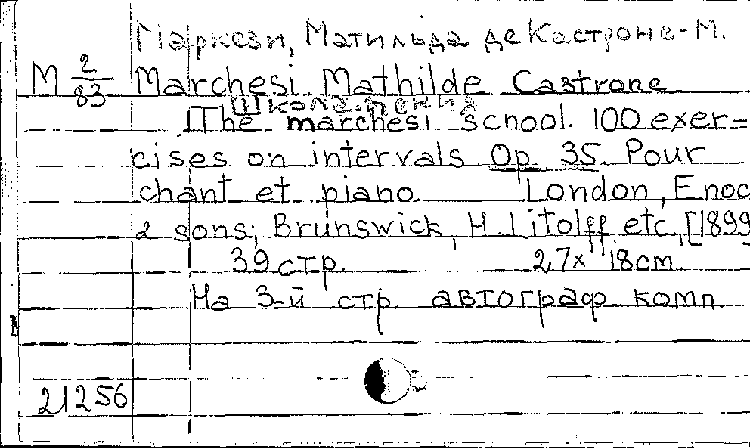 Маркези, Матильда де Кастроне-М.
М 2/83 Marchesi Mathilde Castrone
Школа пения
The marchesi school. 100 exer-
cises on intervals Op. 35. Pour
chant et piano London, Enoc
2 sons; Brunswick, H. Litolff etc, [1899
39 стр. 27x18cm
На 3-й стр. автограф комп.
21256